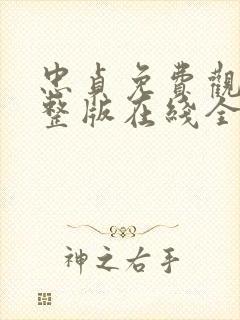 忠貞免費觀
整版在綫全
神之右手